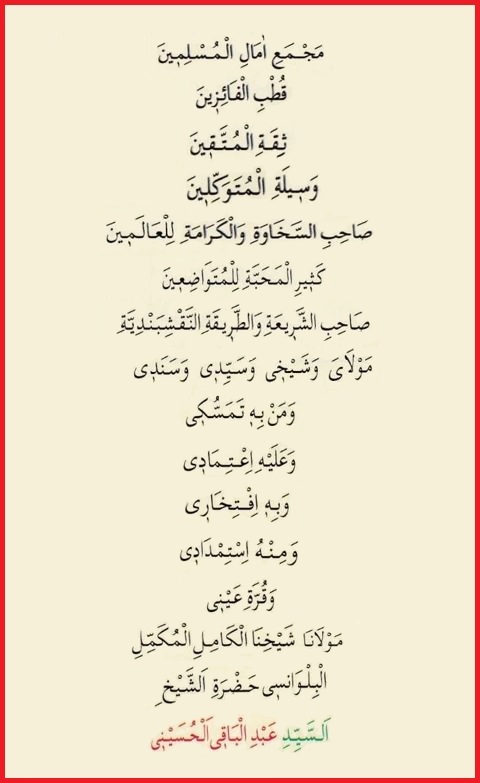 مَجْمَعِ اٰمَالِ الْمُسْلِمِينَ
قُطْبِ الْفَائِزِينَ
ثِقَةِ الْمُتَّقِينَ
وَسِيلَةِ الْمُتَوَكِّلِينَ
صَاحِبِ السَّخَاوَةِ وَالْكَرَامَةِ لِلْعَالَمِينَ
كَثِيرِ الْمَحَبَّةِ لِلْمُتَوَاضِعِينَ
صَاحِبِ الشَّرِيعَةِ وَالطَّرِيقَةِ النَّقْشِبَنْدِيَّةِ
مَوْلَاىَ وَشَيْخِى وَسَيِّدِى وَسَنَدِى
وَمَنْ بِهِ تَمَسُّكِى
وَعَلَيْهِ اِعْتِمَادِى
وَبِهِ اِفْتِخَارِى
وَمِنْهُ اِسْتِمْدَادِى
وَقُرَّةِ عَيْنِى
مَوْلَانَا شَيْخِنَا الْكَامِلِ الْمُكَمِّلِ
الْبِلْوَانِسِى حَضْرَةِ اَلشَّيْخِ
اَلسَّيِّدِ عَبْدِ الْبَاقِى اَلْحُسَيْنِى